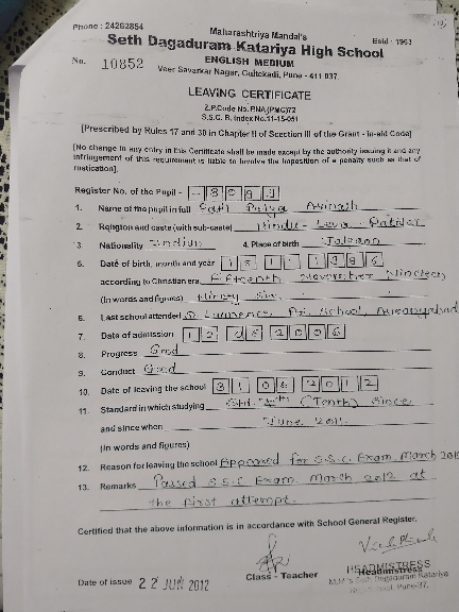 Phone : 24262854
Maharashtriya Mandal's
Estd : 1963
Seth Dagaduram Katariya High School
No. 10852 ENGLISH MEDIUM
Veer Savarkar Nagar, Gultekadi, Pune - 411 037.
LEAVING CERTIFICATE
Z.P.Code No. PNA(PMC)72
S.S.C. B. Index No.11-15-051
[Prescribed by Rules 17 and 30 in Chapter II of Scection III of the Grant - in-aid Code]
[No change in any entry in this Certificate shall be made except by the authority issuing it and any
infringement of this requirement is liable to involve the imposition of a penalty such as that of
rustication].
Register No. of the Pupil -
1. Name of the pupil in full Patil Priya Avinash
2. Religion and caste (with sub-caste) Hindu - Leva - Patidar
3. Nationality Indian 4. Place of birth Jalgaon
5. Date of birth, month and year 15 11 1996
according to Christian era Fifteenth November Nineteen
(In words and figures) Ninety Six
6. Last school attended St. Lawrence School, Aurangabad
7. Date of admission 12 06 2006
8. Progress Good
9. Conduct Good
10. Date of leaving the school 31 06 2012
11. Standard in which studying (Tenth) Since
and since when June 2011
(In words and figures)
12. Reason for leaving the school Appeared for S.S.C Exam. March 2012
13. Remarks Passed S.S.C Exam March 2012 at
the first attempt.
Certified that the above information is in accordance with School General Register.
Date of issue 22 JUN 2012 Class - Teacher Headmistress
HEADMISTRESS
M.M.'s Seth Dagaduram Katariya
High School, Pune-37.